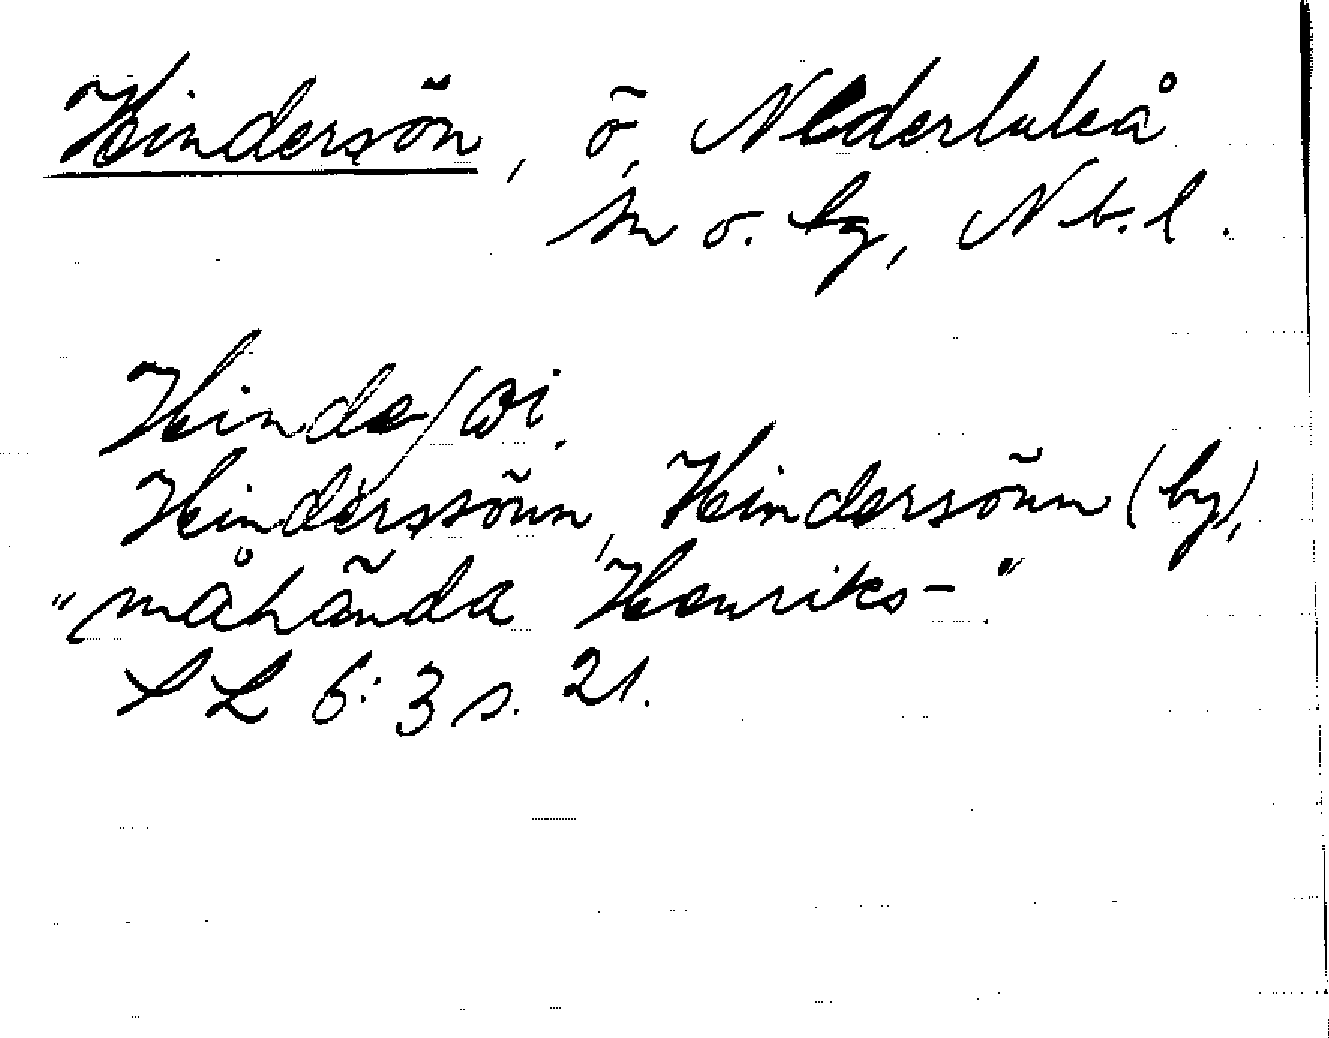 Hindersön, ö, Nederluleå
sn o. by, Nb.l.
Hindersönn, Hindersönn (by),
"måhända Henriks-"
SL 6:3 s. 21.